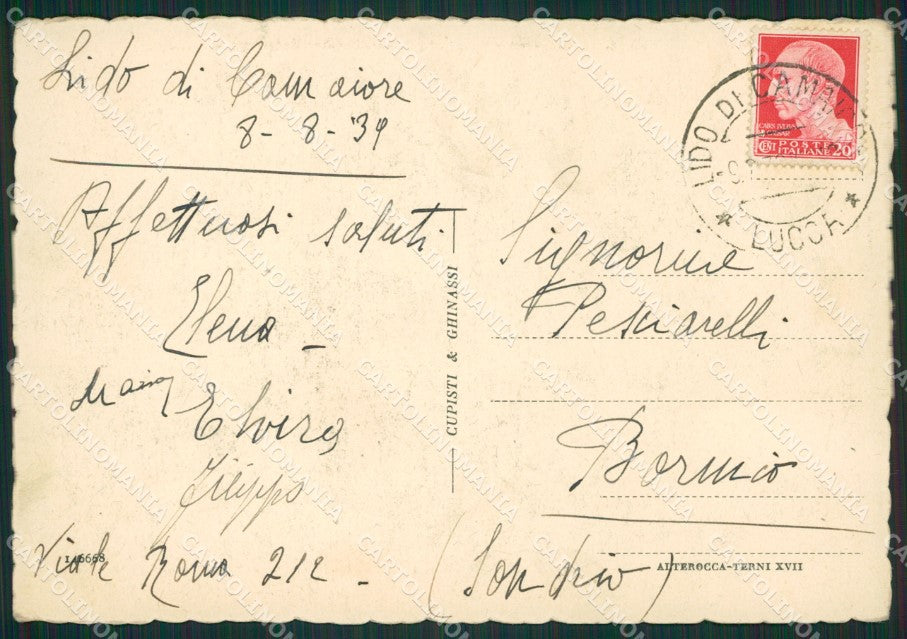 Lido di Camaiore
8-8-'39
Affettuosi saluti
Elena -
Elvira
Filippo
Viale Roma 212 -
146668
CUPISTI & GHINASSI
LIDO DI CAMAIORE
* LUCCA *
CAIVS IVLIVS
CAESAR
CENT POSTE ITALIANE 20
Signorine
Pesciarelli
Bormio
(Sondrio)
ALTEROCCA-TERNI XVII
CARTOLINOMANIA